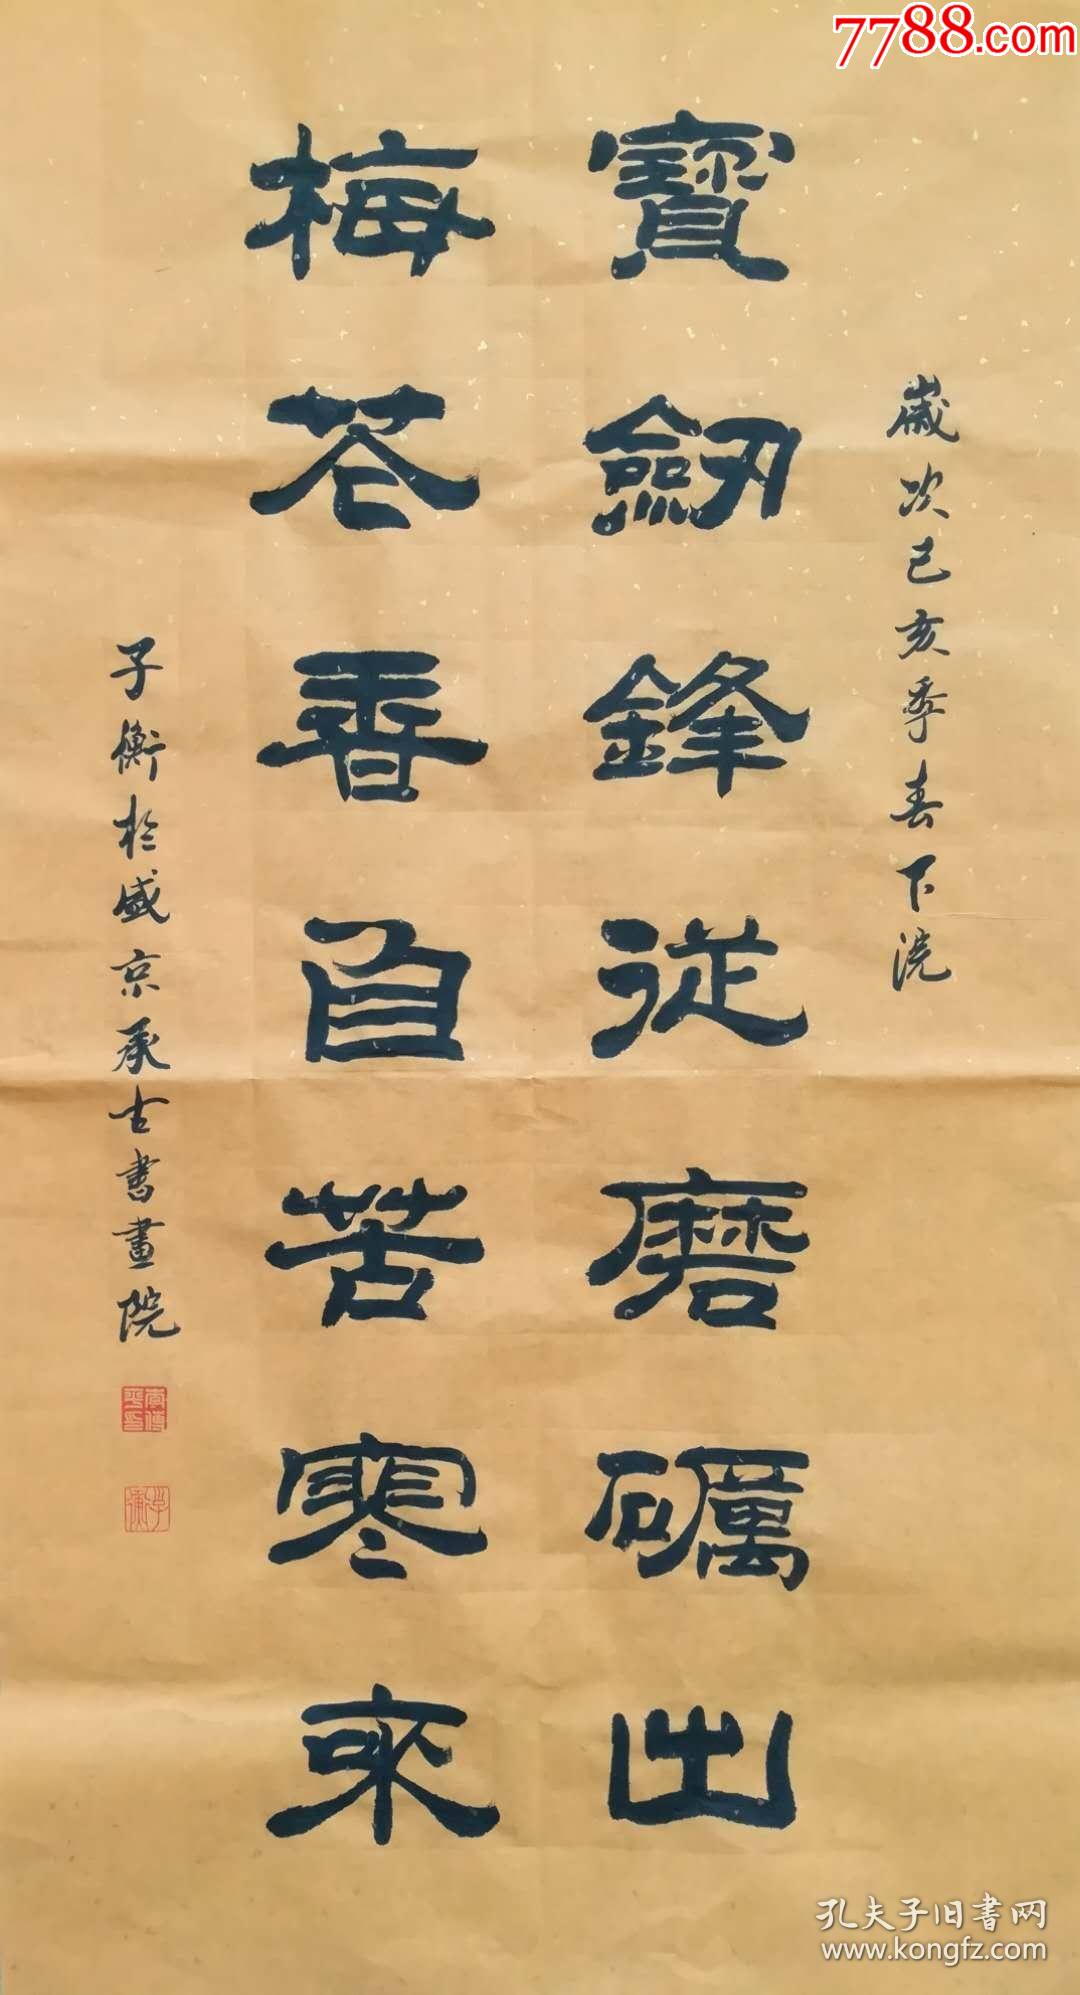 7788.com
歲次己亥季春下浣
寳劔鋒從磨礪出
梅花香自苦寒來
子衡於盛京承古書畫院
孔夫子旧书网
www.kongfz.com